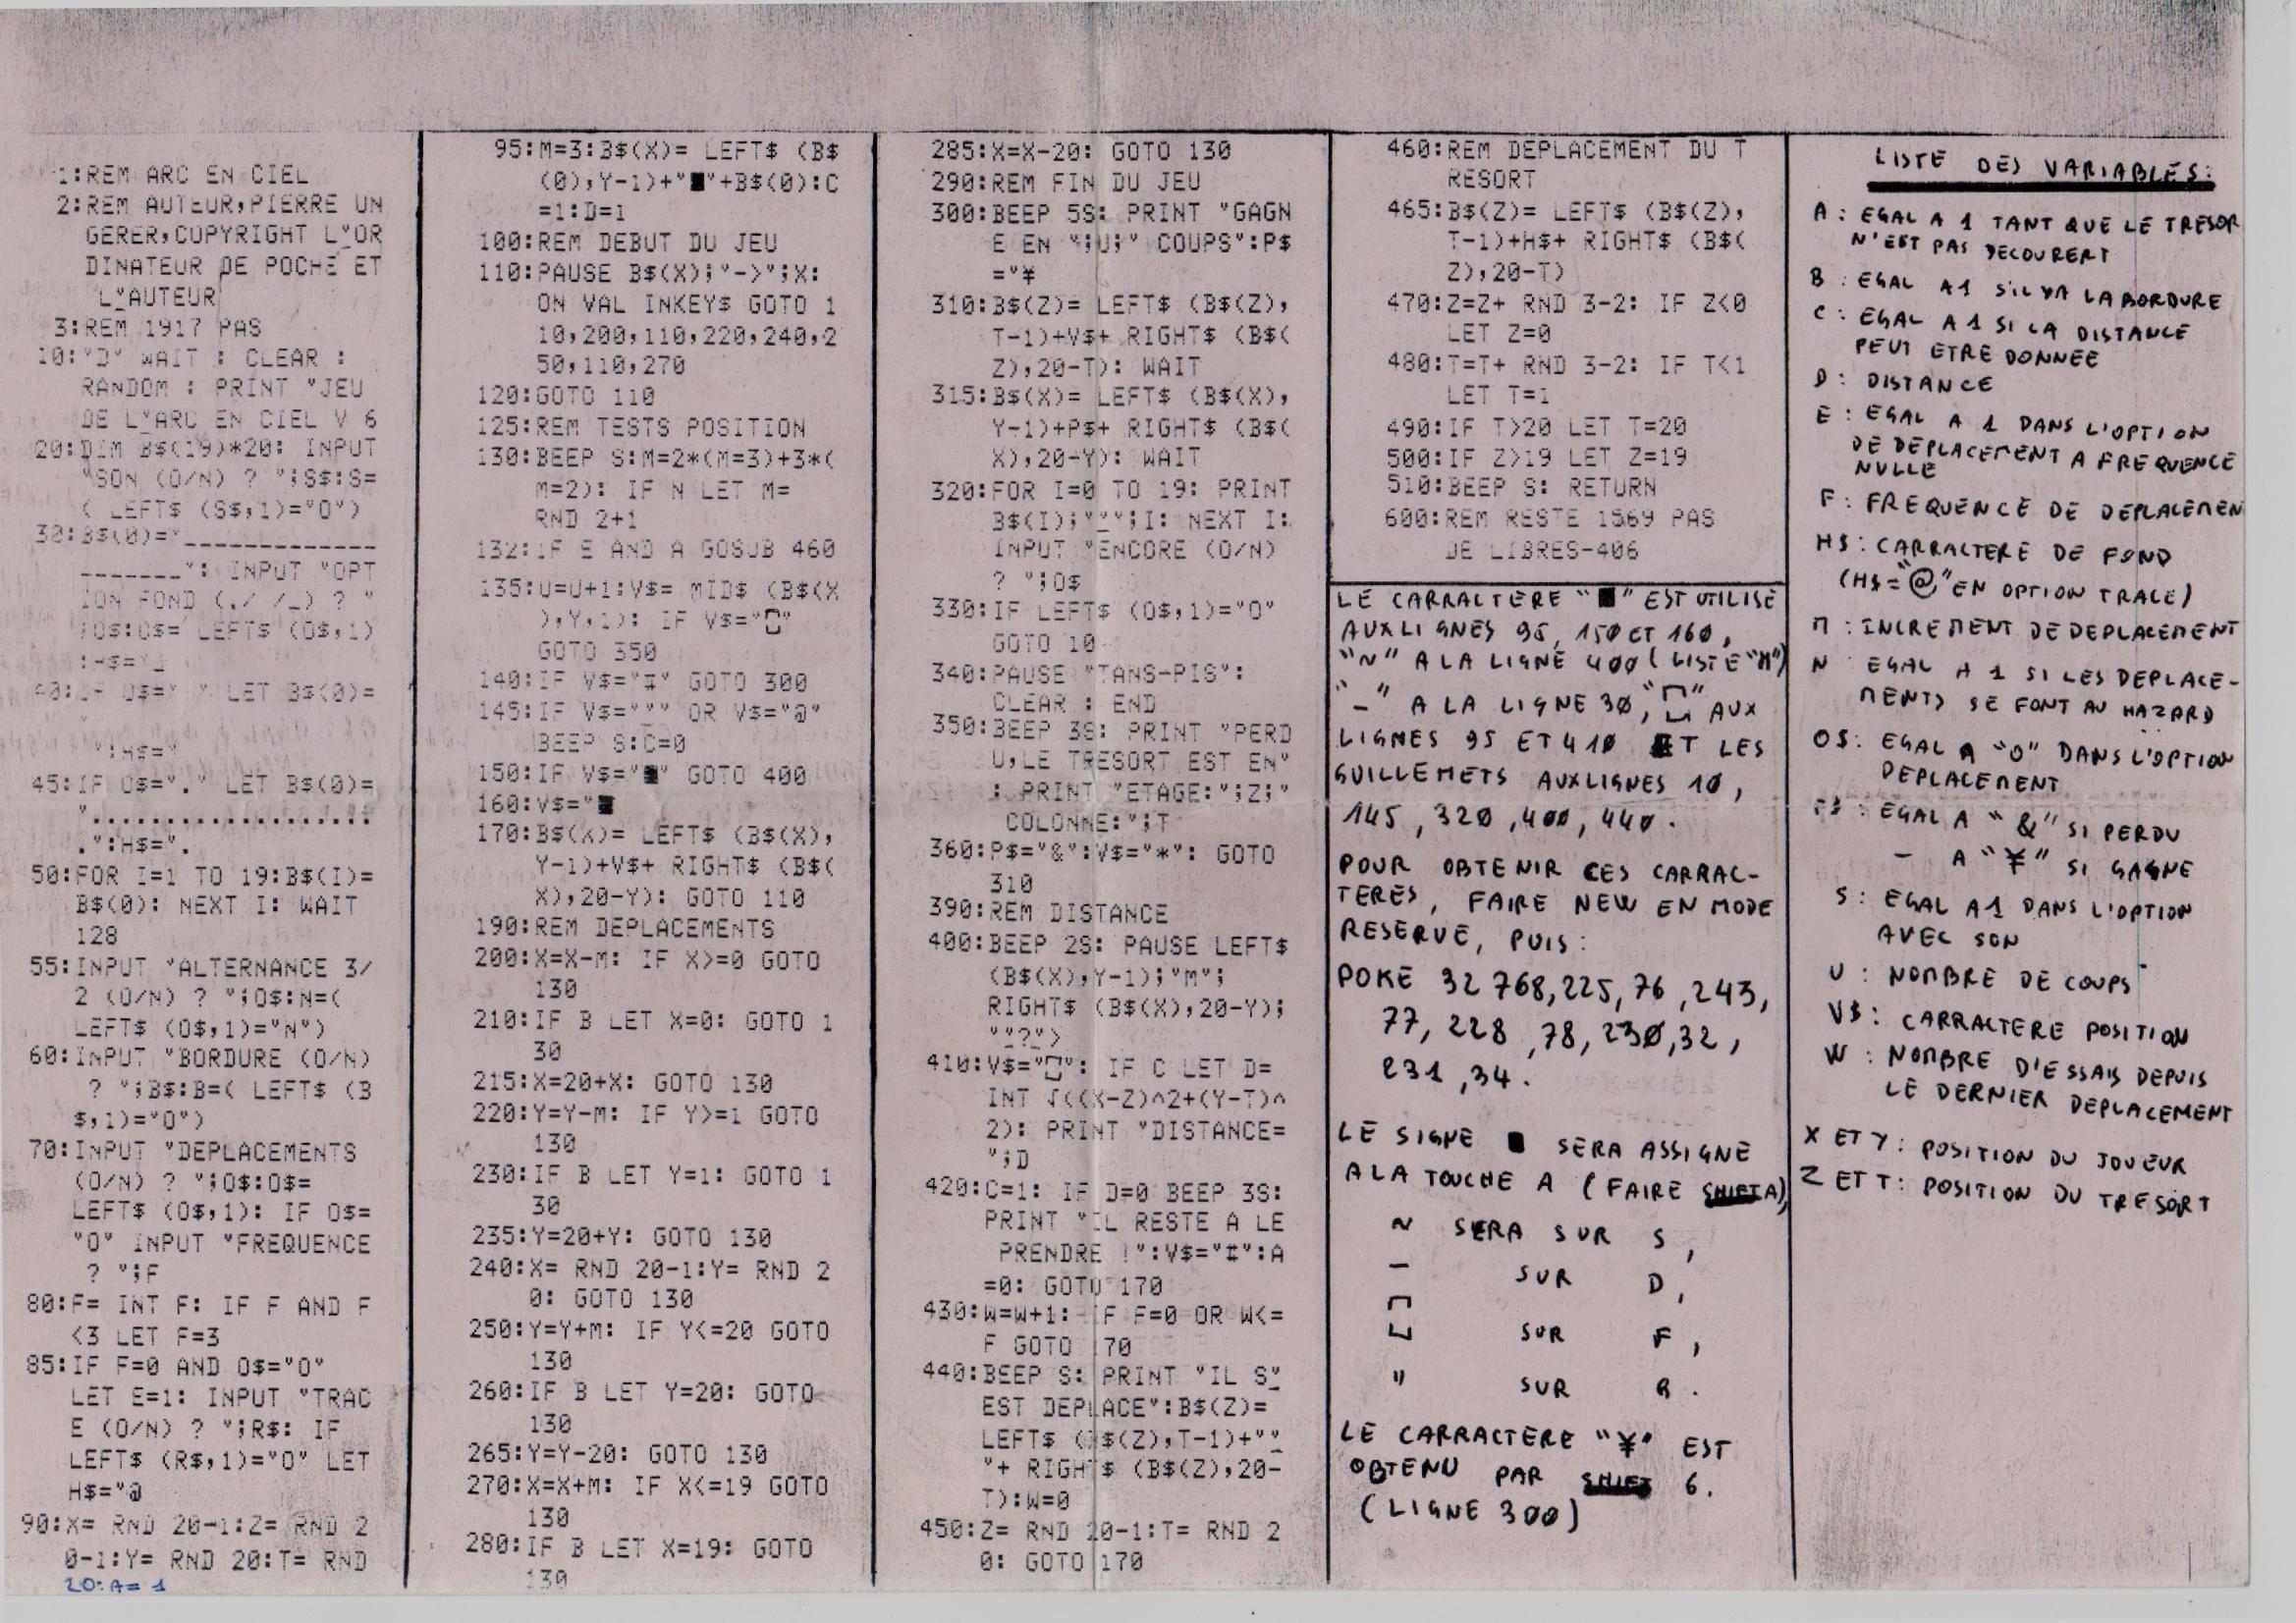 1:REM ARC EN CIEL
2:REM AUTEUR,PIERRE UN
GERER,CUPYRIGHT L"OR
DINATEUR DE POCHE ET
L"AUTEUR
3:REM 1917 PAS
10:"D" WAIT : CLEAR :
RANDOM : PRINT "JEU
DE L"ARC EN CIEL V 6
20:DIM B$(19)*20: INPUT
"SON (O/N) ? ";S$:S=
( LEFT$ (S$,1)="O")
30:B$(0)="_____________
_______": INPUT "OPT
ION FOND (./ /_) ? "
;O$:O$= LEFT$ (O$,1)
:H$="_
40:IF O$=" " LET B$(0)=
"
":H$="
45:IF O$="." LET B$(0)=
"...................
.":H$=".
50:FOR I=1 TO 19:B$(I)=
B$(0): NEXT I: WAIT
128
55:INPUT "ALTERNANCE 3/
2 (O/N) ? ";O$:N=(
LEFT$ (O$,1)="N")
60:INPUT "BORDURE (O/N)
? ";B$:B=( LEFT$ (B
$,1)="O")
70:INPUT "DEPLACEMENTS
(O/N) ? ";O$:O$=
LEFT$ (O$,1): IF O$=
"O" INPUT "FREQUENCE
? ";F
80:F= INT F: IF F AND F
<3 LET F=3
85:IF F=0 AND O$="O"
LET E=1: INPUT "TRAC
E (O/N) ? ";R$: IF
LEFT$ (R$,1)="O" LET
H$="@
90:X= RND 20-1:Z= RND 2
0-1:Y= RND 20:T= RND
20:A= 1
95:M=3:B$(X)= LEFT$ (B$
(0),Y-1)+"■"+B$(0):C
=1:D=1
100:REM DEBUT DU JEU
110:PAUSE B$(X);"->";X:
ON VAL INKEY$ GOTO 1
10,200,110,220,240,2
50,110,270
120:GOTO 110
125:REM TESTS POSITION
130:BEEP S:M=2*(M=3)+3*(
M=2): IF N LET M=
RND 2+1
132:IF E AND A GOSUB 460
135:U=U+1:V$= MID$ (B$(X
),Y,1): IF V$="⎕"
GOTO 350
140:IF V$="#" GOTO 300
145:IF V$=""" OR V$="@"
BEEP S:C=0
150:IF V$="■" GOTO 400
160:V$="■
170:B$(X)= LEFT$ (B$(X),
Y-1)+V$+ RIGHT$ (B$(
X),20-Y): GOTO 110
190:REM DEPLACEMENTS
200:X=X-M: IF X>=0 GOTO
130
210:IF B LET X=0: GOTO 1
30
215:X=20+X: GOTO 130
220:Y=Y-M: IF Y>=1 GOTO
130
230:IF B LET Y=1: GOTO 1
30
235:Y=20+Y: GOTO 130
240:X= RND 20-1:Y= RND 2
0: GOTO 130
250:Y=Y+M: IF Y<=20 GOTO
130
260:IF B LET Y=20: GOTO
130
265:Y=Y-20: GOTO 130
270:X=X+M: IF X<=19 GOTO
130
280:IF B LET X=19: GOTO
130
285:X=X-20: GOTO 130
290:REM FIN DU JEU
300:BEEP 5S: PRINT "GAGN
E EN ";U;" COUPS":P$
="¥
310:B$(Z)= LEFT$ (B$(Z),
T-1)+V$+ RIGHT$ (B$(
Z),20-T): WAIT
315:B$(X)= LEFT$ (B$(X),
Y-1)+P$+ RIGHT$ (B$(
X),20-Y): WAIT
320:FOR I=0 TO 19: PRINT
B$(I);""";I: NEXT I:
INPUT "ENCORE (O/N)
? ";O$
330:IF LEFT$ (O$,1)="O"
GOTO 10
340:PAUSE "TANS-PIS":
CLEAR : END
350:BEEP 3S: PRINT "PERD
U,LE TRESORT EST EN"
: PRINT "ETAGE:";Z;"
COLONNE:";T
360:P$="&":V$="*": GOTO
310
390:REM DISTANCE
400:BEEP 2S: PAUSE LEFT$
(B$(X),Y-1);"M";
RIGHT$ (B$(X),20-Y);
""?">
410:V$="⎕": IF C LET D=
INT √((X-Z)^2+(Y-T)^
2): PRINT "DISTANCE=
";D
420:C=1: IF D=0 BEEP 3S:
PRINT "IL RESTE A LE
PRENDRE !":V$="#":A
=0: GOTO 170
430:W=W+1: IF F=0 OR W<=
F GOTO 170
440:BEEP S: PRINT "IL S"
EST DEPLACE":B$(Z)=
LEFT$ (B$(Z),T-1)+""
"+ RIGHT$ (B$(Z),20-
T):W=0
450:Z= RND 20-1:T= RND 2
0: GOTO 170
460:REM DEPLACEMENT DU T
RESORT
465:B$(Z)= LEFT$ (B$(Z),
T-1)+H$+ RIGHT$ (B$(
Z),20-T)
470:Z=Z+ RND 3-2: IF Z<0
LET Z=0
480:T=T+ RND 3-2: IF T<1
LET T=1
490:IF T>20 LET T=20
500:IF Z>19 LET Z=19
510:BEEP S: RETURN
600:REM RESTE 1569 PAS
DE LIBRES-406
LE CARRACTERE "■" EST UTILISE
AUX LIGNES 95, 150 ET 160,
"~" A LA LIGNE 400 (LISTE "M")
"-" A LA LIGNE 30, "⎕" AUX
LIGNES 95 ET 410 ET LES
GUILLEMETS AUX LIGNES 10,
145, 320, 400, 440.
POUR OBTENIR CES CARRAC-
TERES, FAIRE NEW EN MODE
RESERVE, PUIS:
POKE 32768,225,76,243,
77,228,78,230,32,
231,34.
LE SIGNE ■ SERA ASSIGNE
A LA TOUCHE A (FAIRE SHIFT A)
~ SERA SUR S,
- SUR D,
⎕ SUR F,
" SUR G.
LE CARRACTERE "¥" EST
OBTENU PAR SHIFT 6.
(LIGNE 300)
LISTE DES VARIABLES:
A : EGAL A 1 TANT QUE LE TRESOR
N'EST PAS DECOUVERT
B : EGAL A 1 S'IL YA LA BORDURE
C : EGAL A 1 SI LA DISTANCE
PEUT ETRE DONNEE
D : DISTANCE
E : EGAL A 1 DANS L'OPTION
DE DEPLACEMENT A FREQUENCE
NULLE
F : FREQUENCE DE DEPLACEMEN
H$ : CARRACTERE DE FOND
(H$="@" EN OPTION TRACE)
M : INCREMENT DE DEPLACEMENT
N EGAL A 1 SI LES DEPLACE-
MENTS SE FONT AU HAZARD
O$ : EGAL A "O" DANS L'OPTION
DEPLACEMENT
P$ : EGAL A "&" SI PERDU
- A "¥" SI GAGNE
S : EGAL A 1 DANS L'OPTION
AVEC SON
U : NOMBRE DE COUPS
V$ : CARRACTERE POSITION
W : NOMBRE D'ESSAIS DEPUIS
LE DERNIER DEPLACEMENT
X ET Y : POSITION DU JOUEUR
Z ET T : POSITION DU TRESORT